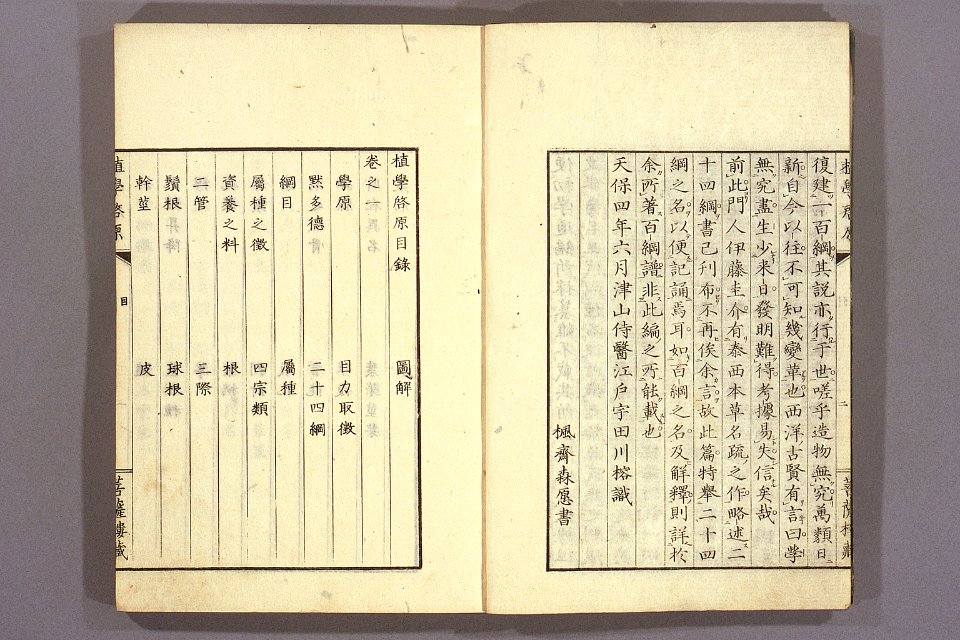 復建一百綱其說亦行于世嗟乎造物無究萬類日
新自今以往不可知幾變革也西洋古賢有言曰學
無究盡生少來日發明難得考據易失信矣哉
前此門人伊藤圭介有泰西本草名疏之作略述二
十四綱書已刊布不再俟余言故此篇特舉二十四
綱之名以便記誦焉耳如百綱之名及解釋則詳於
余所著百綱譜非此編之所能載也
天保四年六月津山侍醫江戶宇田川榕識
楓齊森愿書
植學啓原目錄
卷之
圖解
學原
目力取徵
默多德
二十四綱
綱目
屬種
屬種之徵
四宗類
資養之料
根
二管
三際
鬚根
球根
幹莖
皮
植學啓原
目
菩薩樓藏